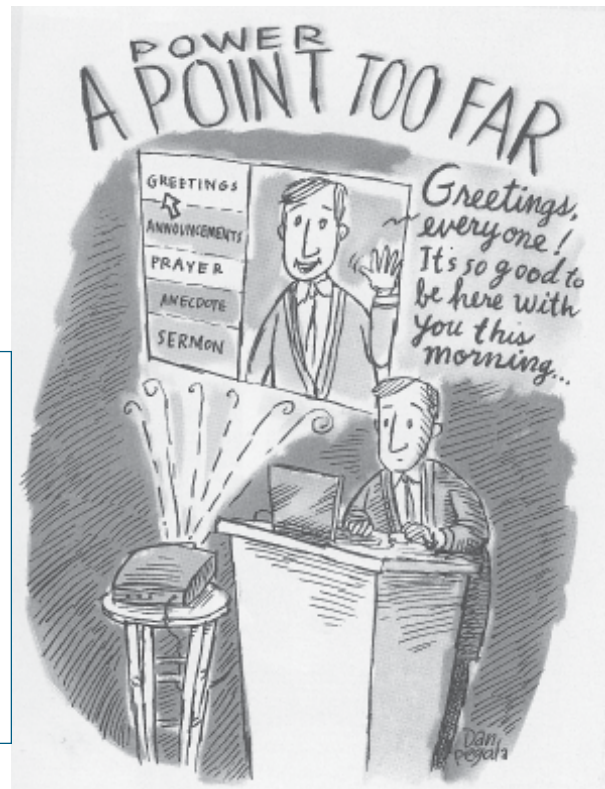 POWER
A POINT TOO FAR
GREETINGS
ANNOUNCEMENTS
PRAYER
ANECDOTE
SERMON
Greetings,
everyone!
It's so good to
be here with
you this
morning...
Dan
Pegoda